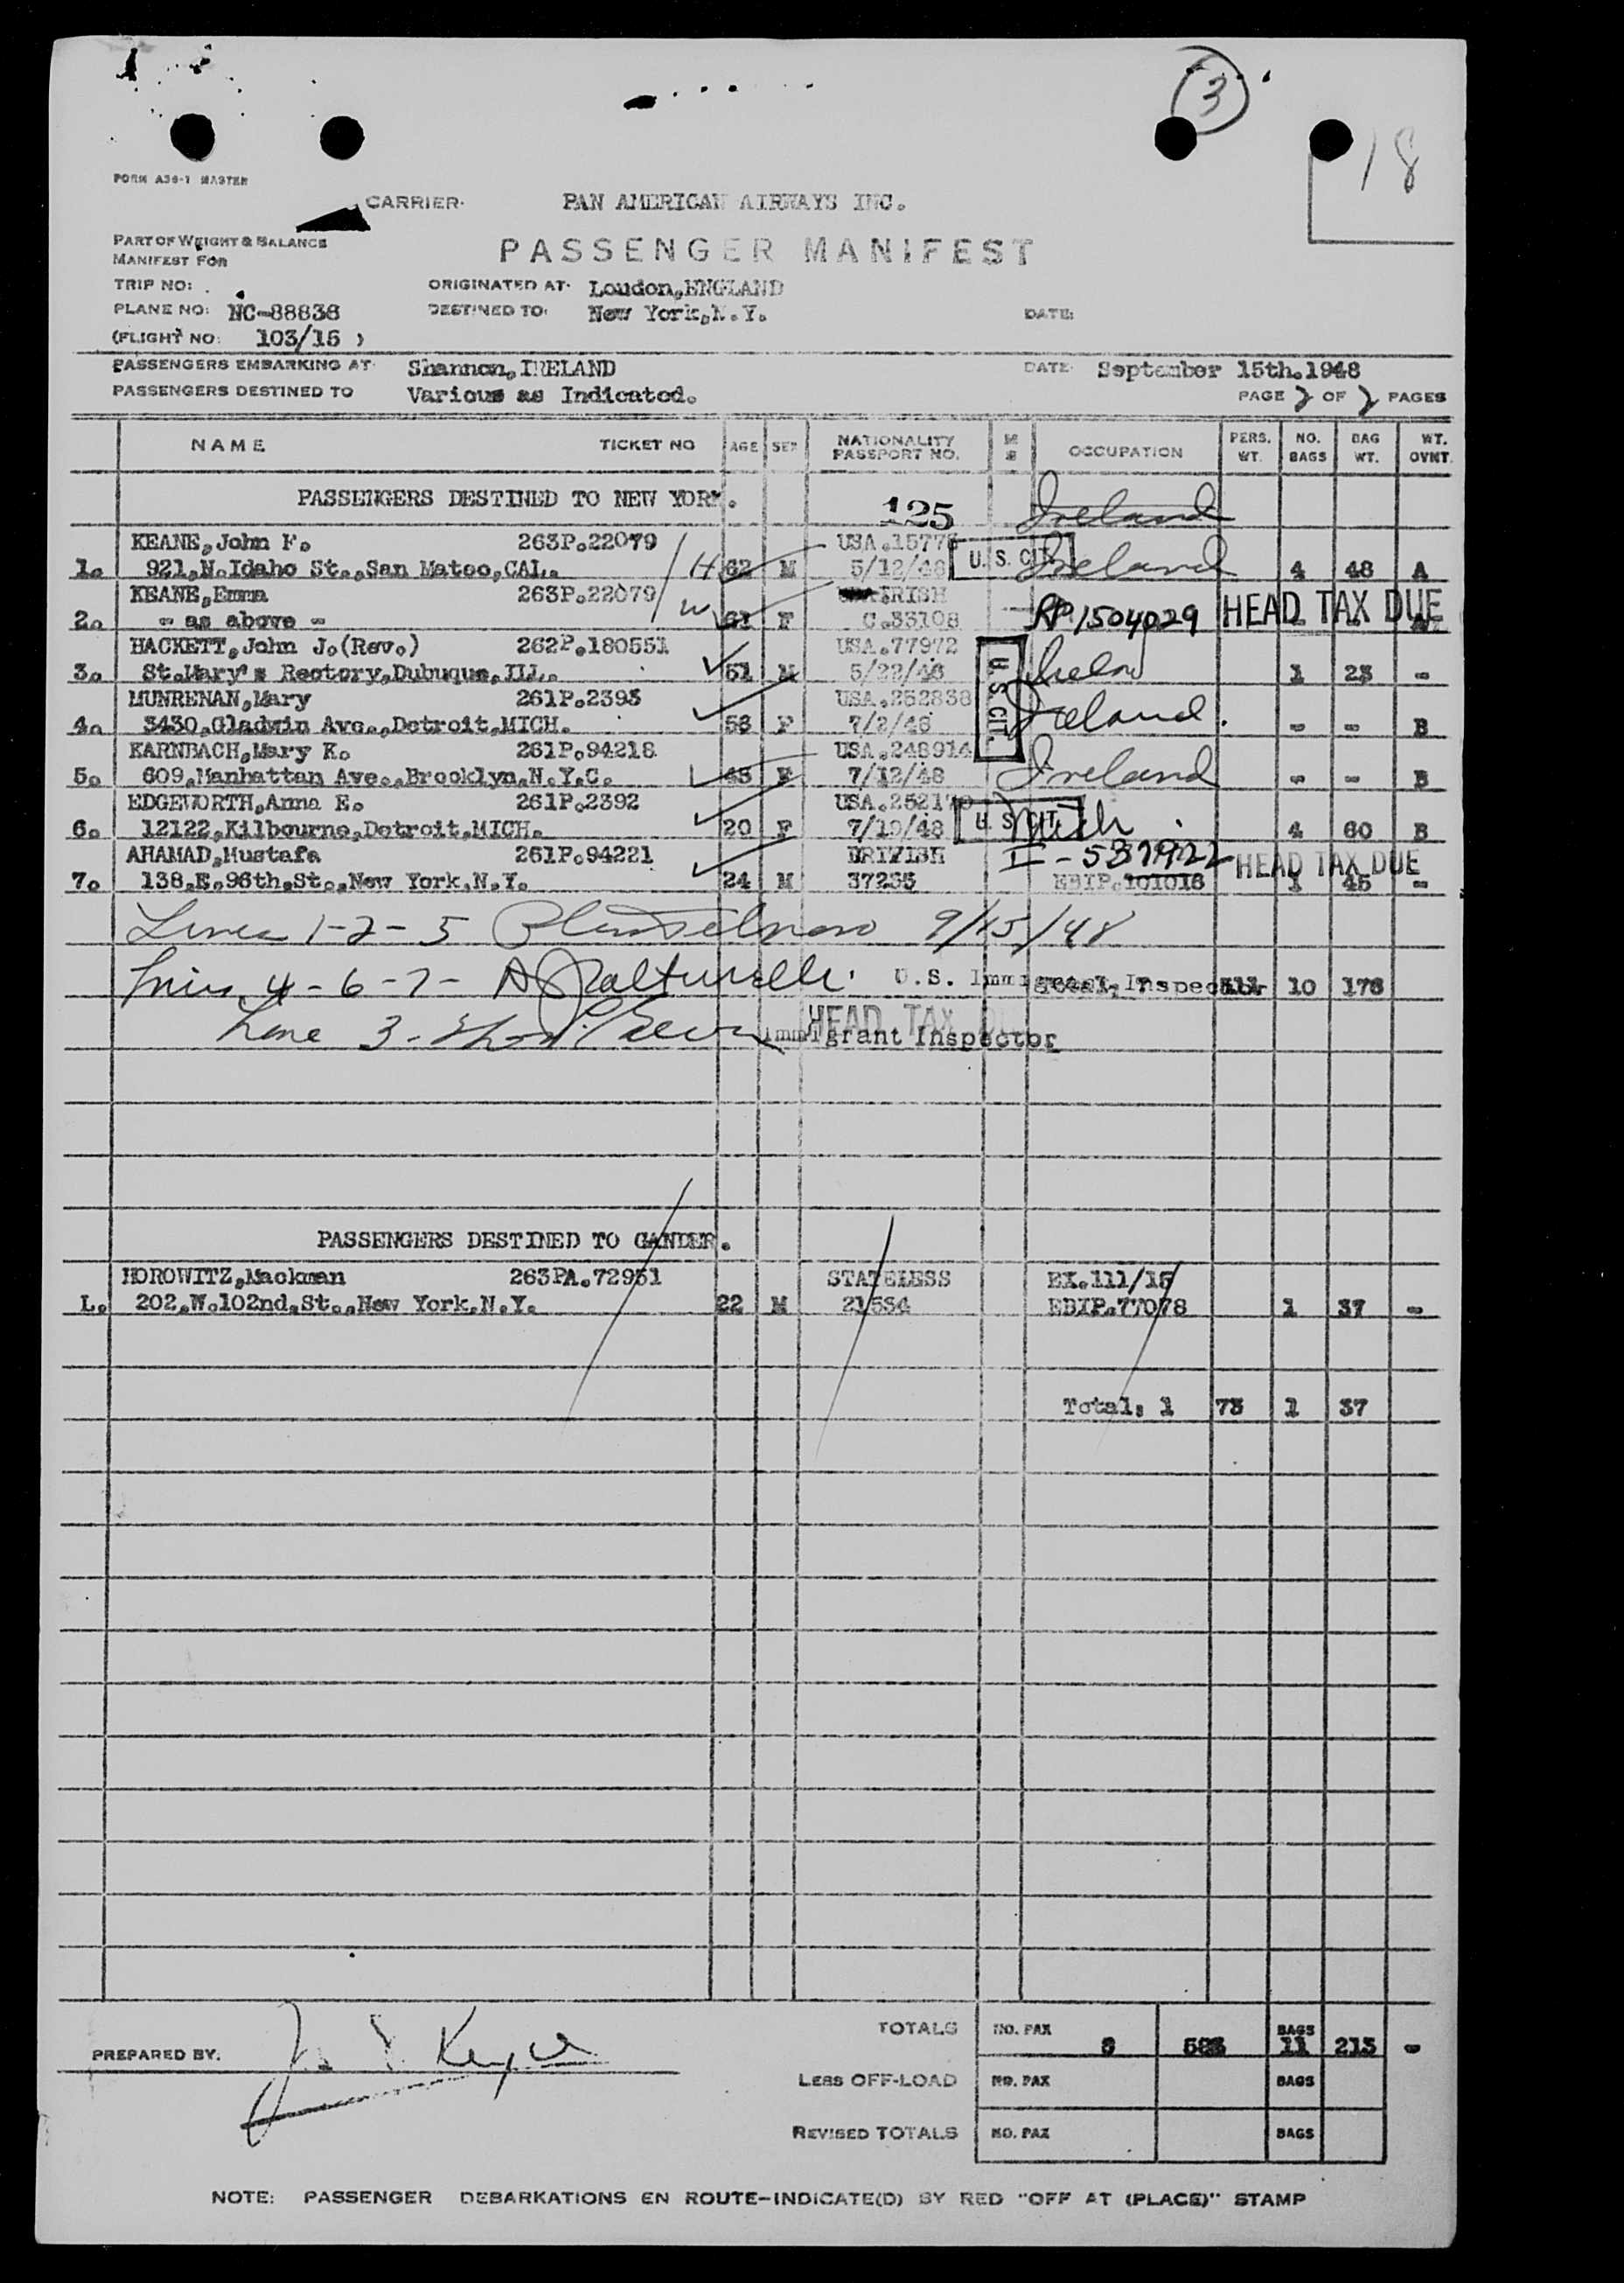 3
18
FORM A36-1 MASTER
CARRIER. PAN AMERICAN AIRWAYS INC.
PART OF WEIGHT & BALANCE
MANIFEST FOR
PASSENGER MANIFEST
TRIP NO: ORIGINATED AT. London,ENGLAND
PLANE NO: NC-88838 DESTINED TO. New York,N.Y. DATE:
(FLIGHT NO: 103/15 )
PASSENGERS EMBARKING AT. Shannon,IRELAND DATE. September 15th.1948
PASSENGERS DESTINED TO Various as Indicated. PAGE 2 OF 2 PAGES
NAME TICKET NO AGE SEX NATIONALITY PASSPORT NO. OCCUPATION PERS. WT. NO. BAGS BAG WT. WT. OVNT.
PASSENGERS DESTINED TO NEW YORK. 125 Ireland
KEANE,John F. 263P.22079 USA.15778 U. S. CIT.
1. 921,N.Idaho St.,San Mateo,CAL. H 62 M 5/12/48 Ireland 4 48 A
KEANE,Emma 263P.22079 IRISH HEAD TAX DUE
2. - as above - W 61 F C.33108 RP 1504029
HACKETT,John J.(Rev.) 262P.180551 USA.77972 U. S. CIT.
3. St.Mary's Rectory,Dubuque,ILL. 51 M 5/22/46 1 23 -
MUNRENAN,Mary 261P.2393 USA.252838
4. 3430,Gladwin Ave.,Detroit,MICH. 58 F 7/2/48 Ireland. - - B
KARNBACH,Mary K. 261P.94218 USA.248914
5. 609,Manhattan Ave.,Brooklyn,N.Y.C. 45 F 7/12/48 Ireland - - B
EDGEWORTH,Anna E. 261P.2392 U. S. CIT.
6. 12122,Kilbourne,Detroit,MICH. 20 F 7/19/48 Mich. 4 60 B
AHAMAD,Mustafa 261P.94221 BRITISH HEAD TAX DUE
7. 138,E.96th.St.,New York,N.Y. 24 M 37235 EBIP.101016 1 45 -
Lines 1-2-5 9/15/48
Lines 4-6-7- U.S. Immigrant Inspector 10 176
Line 3- HEAD TAX
Immigrant Inspector
PASSENGERS DESTINED TO GANDER.
HOROWITZ,Mackman 263PA.72951 STATELESS EX.111/15
L. 202.W.102nd.St.,New York,N.Y. 22 M 21534 EBIP.77078 1 37 -
Total: 1 73 1 37
TOTALS NO. PAX 8 BAGS 11 213 -
PREPARED BY.
LESS OFF-LOAD NO. PAX BAGS
REVISED TOTALS NO. PAX BAGS
NOTE: PASSENGER DEBARKATIONS EN ROUTE-INDICATE(D) BY RED "OFF AT (PLACE)" STAMP